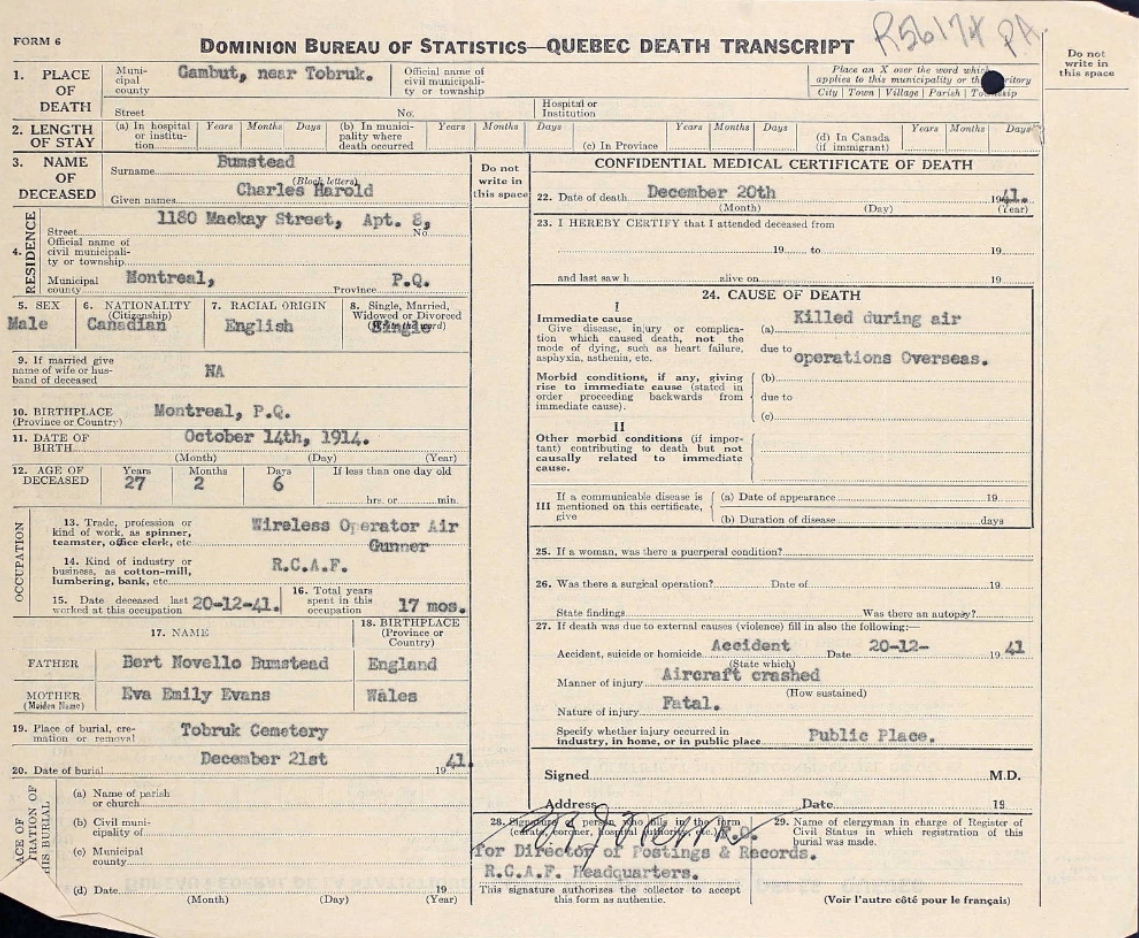 R56174 PA.
FORM 6
DOMINION BUREAU OF STATISTICS—QUEBEC DEATH TRANSCRIPT
Do not
write in
this space
1. PLACE
OF
DEATH
Muni-
cipal
county
Gambut, near Tobruk.
Official name of
civil municipali-
ty or township
Place an X over the word which
applies to this municipality or territory
City | Town | Village | Parish | Township
Street No.
Hospital or
Institution
2. LENGTH
OF STAY
(a) In hospital
or institu-
tion
Years Months Days
(b) In munici-
pality where
death occurred
Years Months Days
(c) In Province
Years Months Days
(d) In Canada
(if immigrant)
Years Months Days
3. NAME
OF
DECEASED
Surname Bumstead
(Block letters)
Given names Charles Harold
Do not
write in
this space
4. RESIDENCE
1180 Mackay Street, Apt. 8,
Street No.
Official name of
civil municipali-
ty or township
Municipal
county Montreal, Province P.Q.
5. SEX
Male
6. NATIONALITY
(Citizenship)
Canadian
7. RACIAL ORIGIN
English
8. Single, Married,
Widowed or Divorced
(Write the word)
Single
9. If married give
name of wife or hus-
band of deceased
NA
10. BIRTHPLACE
(Province or Country)
Montreal, P.Q.
11. DATE OF
BIRTH
October 14th, 1914.
(Month) (Day) (Year)
12. AGE OF
DECEASED
Years Months Days If less than one day old
27 2 6
hrs. or min.
OCCUPATION
13. Trade, profession or
kind of work, as spinner,
teamster, office clerk, etc
Wireless Operator Air
Gunner
14. Kind of industry or
business, as cotton-mill,
lumbering, bank, etc.
R.C.A.F.
15. Date deceased last
worked at this occupation 20-12-41.
16. Total years
spent in this
occupation 17 mos.
17. NAME
18. BIRTHPLACE
(Province or
Country)
FATHER Bert Novello Bumstead England
MOTHER
(Maiden Name) Eva Emily Evans Wales
19. Place of burial, cre-
mation or removal
Tobruk Cemetery
20. Date of burial December 21st 19 41.
ACE OF
TRATION OF
HIS BURIAL
(a) Name of parish
or church
(b) Civil muni-
cipality of
(c) Municipal
county
(d) Date 19
(Month) (Day) (Year)
CONFIDENTIAL MEDICAL CERTIFICATE OF DEATH
22. Date of death December 20th 1941.
(Month) (Day) (Year)
23. I HEREBY CERTIFY that I attended deceased from
19 to 19
and last saw h alive on 19
24. CAUSE OF DEATH
I
Immediate cause
Give disease, injury or complica-
tion which caused death, not the
mode of dying, such as heart failure,
asphyxia, asthenia, etc.
(a) Killed during air
due to operations Overseas.
Morbid conditions, if any, giving
rise to immediate cause (stated in
order proceeding backwards from
immediate cause).
(b)
due to
(c)
II
Other morbid conditions (if impor-
tant) contributing to death but not
causally related to immediate
cause.
III If a communicable disease is
mentioned on this certificate,
give
(a) Date of appearance 19
(b) Duration of disease days
25. If a woman, was there a puerperal condition?
26. Was there a surgical operation? Date of 19
State findings Was there an autopsy?
27. If death was due to external causes (violence) fill in also the following:—
Accident, suicide or homicide Accident Date 20-12- 19 41
(State which)
Manner of injury Aircraft crashed
(How sustained)
Nature of injury Fatal.
Specify whether injury occurred in
industry, in home, or in public place Public Place.
Signed M.D.
Address Date 19
28. Signature of person who fills in the form
(curate, coroner, hospital authority, etc.)
for Director of Postings & Records.
R.C.A.F. Headquarters.
This signature authorizes the collector to accept
this form as authentic.
29. Name of clergyman in charge of Register of
Civil Status in which registration of this
burial was made.
(Voir l'autre côté pour le français)